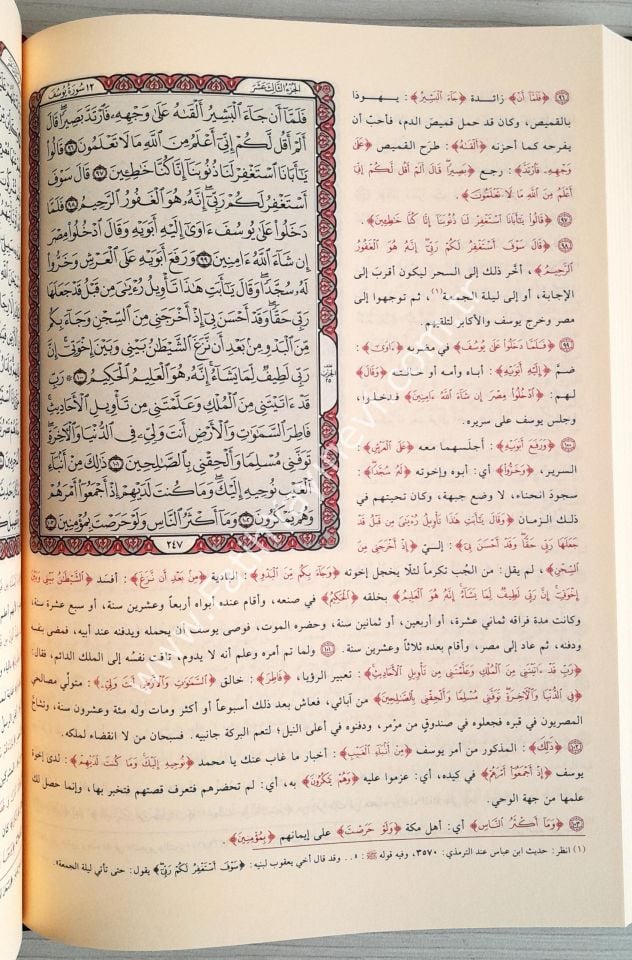 ١٢ سورة يوسف
الجزء الثالث عشر
فَلَمَّآ أَن جَآءَ ٱلْبَشِيرُ أَلْقَىٰهُ عَلَىٰ وَجْهِهِۦ فَٱرْتَدَّ بَصِيرًا ۖ قَالَ
أَلَمْ أَقُل لَّكُمْ إِنِّىٓ أَعْلَمُ مِنَ ٱللَّهِ مَا لَا تَعْلَمُونَ ٩٦ قَالُوا۟
يَـٰٓأَبَانَا ٱسْتَغْفِرْ لَنَا ذُنُوبَنَآ إِنَّا كُنَّا خَـٰطِـِٔينَ ٩٧ قَالَ سَوْفَ
أَسْتَغْفِرُ لَكُمْ رَبِّىٓ ۖ إِنَّهُۥ هُوَ ٱلْغَفُورُ ٱلرَّحِيمُ ٩٨ فَلَمَّا
دَخَلُوا۟ عَلَىٰ يُوسُفَ ءَاوَىٰٓ إِلَيْهِ أَبَوَيْهِ وَقَالَ ٱدْخُلُوا۟ مِصْرَ
إِن شَآءَ ٱللَّهُ ءَامِنِينَ ٩٩ وَرَفَعَ أَبَوَيْهِ عَلَى ٱلْعَرْشِ وَخَرُّوا۟
لَهُۥ سُجَّدًا ۖ وَقَالَ يَـٰٓأَبَتِ هَـٰذَا تَأْوِيلُ رُءْيَـٰىَ مِن قَبْلُ قَدْ جَعَلَهَا
رَبِّى حَقًّا ۖ وَقَدْ أَحْسَنَ بِىٓ إِذْ أَخْرَجَنِى مِنَ ٱلسِّجْنِ وَجَآءَ بِكُم
مِّنَ ٱلْبَدْوِ مِنۢ بَعْدِ أَن نَّزَغَ ٱلشَّيْطَـٰنُ بَيْنِى وَبَيْنَ إِخْوَتِىٓ ۚ إِنَّ
رَبِّى لَطِيفٌ لِّمَا يَشَآءُ ۚ إِنَّهُۥ هُوَ ٱلْعَلِيمُ ٱلْحَكِيمُ ١٠٠ رَبِّ
قَدْ ءَاتَيْتَنِى مِنَ ٱلْمُلْكِ وَعَلَّمْتَنِى مِن تَأْوِيلِ ٱلْأَحَادِيثِ ۚ
فَاطِرَ ٱلسَّمَـٰوَٰتِ وَٱلْأَرْضِ أَنتَ وَلِىِّۦ فِى ٱلدُّنْيَا وَٱلْـَٔاخِرَةِ ۖ
تَوَفَّنِى مُسْلِمًا وَأَلْحِقْنِى بِٱلصَّـٰلِحِينَ ١٠١ ذَٰلِكَ مِنْ أَنۢبَآءِ
ٱلْغَيْبِ نُوحِيهِ إِلَيْكَ ۖ وَمَا كُنتَ لَدَيْهِمْ إِذْ أَجْمَعُوٓا۟ أَمْرَهُمْ
وَهُمْ يَمْكُرُونَ ١٠٢ وَمَآ أَكْثَرُ ٱلنَّاسِ وَلَوْ حَرَصْتَ بِمُؤْمِنِينَ ١٠٣
٢٤٧
٩٦ ﴿فَلَمَّا أَن﴾ زائدة ﴿جَاءَ الْبَشِيرُ﴾: يهوذا
بالقميص، وكان قد حمل قميصَ الدم، فأحب أن
يفرحه كما أحزنه ﴿أَلْقَاهُ﴾: طرَح القميص ﴿عَلَى
وَجْهِهِ فَارْتَدَّ﴾: رجع ﴿بَصِيرًا قَالَ أَلَمْ أَقُل لَّكُمْ إِنِّي
أَعْلَمُ مِنَ اللَّهِ مَا لَا تَعْلَمُونَ﴾.
٩٧ ﴿قَالُوا يَا أَبَانَا اسْتَغْفِرْ لَنَا ذُنُوبَنَا إِنَّا كُنَّا خَاطِئِينَ﴾.
٩٨ ﴿قَالَ سَوْفَ أَسْتَغْفِرُ لَكُمْ رَبِّي إِنَّهُ هُوَ الْغَفُورُ
الرَّحِيمُ﴾، أخّر ذلك إلى السحر ليكون أقربَ إلى
الإجابة، أو إلى ليلة الجمعة(١)، ثم توجهوا إلى
مصر وخرج يوسف والأكابر لتلقيهم.
٩٩ ﴿فَلَمَّا دَخَلُوا عَلَى يُوسُفَ﴾ في مضربه ﴿ءَاوَى﴾:
ضمَّ ﴿إِلَيْهِ أَبَوَيْهِ﴾: أباه وأمه أو خالته ﴿وَقَالَ﴾
لهم: ﴿ادْخُلُوا مِصْرَ إِن شَاءَ اللَّهُ ءَامِنِينَ﴾ فدخلوا،
وجلس يوسف على سريره.
١٠٠ ﴿وَرَفَعَ أَبَوَيْهِ﴾: أجلسهما معه ﴿عَلَى الْعَرْشِ﴾:
السرير، ﴿وَخَرُّوا﴾ أي: أبوه وإخوته ﴿لَهُ سُجَّدًا﴾:
سجودَ انحناء، لا وضع جبهة، وكان تحيتهم في
ذلك الزمان ﴿وَقَالَ يَا أَبَتِ هَذَا تَأْوِيلُ رُءْيَايَ مِن قَبْلُ قَدْ
جَعَلَهَا رَبِّي حَقًّا وَقَدْ أَحْسَنَ بِي﴾: إليّ ﴿إِذْ أَخْرَجَنِي مِنَ
السِّجْنِ﴾، لم يقل: من الجُب تكرماً لئلا يخجل إخوته ﴿وَجَاءَ بِكُم مِّنَ الْبَدْوِ﴾: البادية ﴿مِن بَعْدِ أَن نَّزَغَ﴾: أفسد ﴿الشَّيْطَانُ بَيْنِي وَبَيْنَ
إِخْوَتِي إِنَّ رَبِّي لَطِيفٌ لِّمَا يَشَاءُ إِنَّهُ هُوَ الْعَلِيمُ﴾ بخلقه ﴿الْحَكِيمُ﴾ في صنعه، وأقام عنده أبواه أربعاً وعشرين سنة، أو سبع عشرة سنة،
وكانت مدة فراقه ثماني عشرة، أو أربعين، أو ثمانين سنة، وحضره الموت، فوصى يوسف أن يحمله ويدفنه عند أبيه، فمضى بنفسه
ودفنه، ثم عاد إلى مصر، وأقام بعده ثلاثاً وعشرين سنة. ١٠١ ولما تم أمره وعلم أنه لا يدوم، تاقت نفسُه إلى الملك الدائم، فقال:
﴿رَبِّ قَدْ ءَاتَيْتَنِي مِنَ الْمُلْكِ وَعَلَّمْتَنِي مِن تَأْوِيلِ الْأَحَادِيثِ﴾: تعبير الرؤيا، ﴿فَاطِرَ﴾: خالق ﴿السَّمَاوَاتِ وَالْأَرْضِ أَنتَ وَلِيِّ﴾: متولّي مصالحي
﴿فِي الدُّنْيَا وَالْآخِرَةِ تَوَفَّنِي مُسْلِمًا وَأَلْحِقْنِي بِالصَّالِحِينَ﴾ من آبائي، فعاش بعد ذلك أسبوعاً أو أكثر ومات وله مئة وعشرون سنة، وتشاحّ
المصريون في قبره فجعلوه في صندوق من مرْمر، ودفنوه في أعلى النيل؛ لتعم البركة جانبيه. فسبحان من لا انقضاء لملكه.
١٠٢ ﴿ذَلِكَ﴾: المذكور من أمر يوسف ﴿مِنْ أَنبَاءِ الْغَيْبِ﴾: أخبار ما غاب عنك يا محمد ﴿نُوحِيهِ إِلَيْكَ وَمَا كُنتَ لَدَيْهِمْ﴾: لدى إخوة
يوسف ﴿إِذْ أَجْمَعُوا أَمْرَهُمْ﴾ في كيده، أي: عزموا عليه ﴿وَهُمْ يَمْكُرُونَ﴾ به، أي: لم تحضرهم فتعرف قصتهم فتخبر بها، وإنما حصل لك
علمها من جهة الوحي.
١٠٣ ﴿وَمَا أَكْثَرُ النَّاسِ﴾ أي: أهل مكة ﴿وَلَوْ حَرَصْتَ﴾ على إيمانهم ﴿بِمُؤْمِنِينَ﴾.
(١) انظر: حديث ابن عباس عند الترمذي: ٣٥٧٠، وفيه قوله ﷺ: «.. وقد قال أخي يعقوب لبنيه: ﴿سَوْفَ أَسْتَغْفِرُ لَكُمْ رَبِّي﴾ يقول: حتى تأتي ليلة الجمعة».